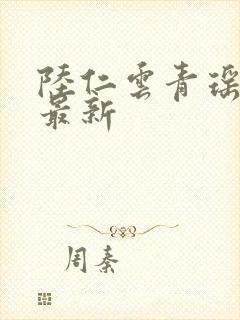 陸仁雲青瑶
最新
周秦